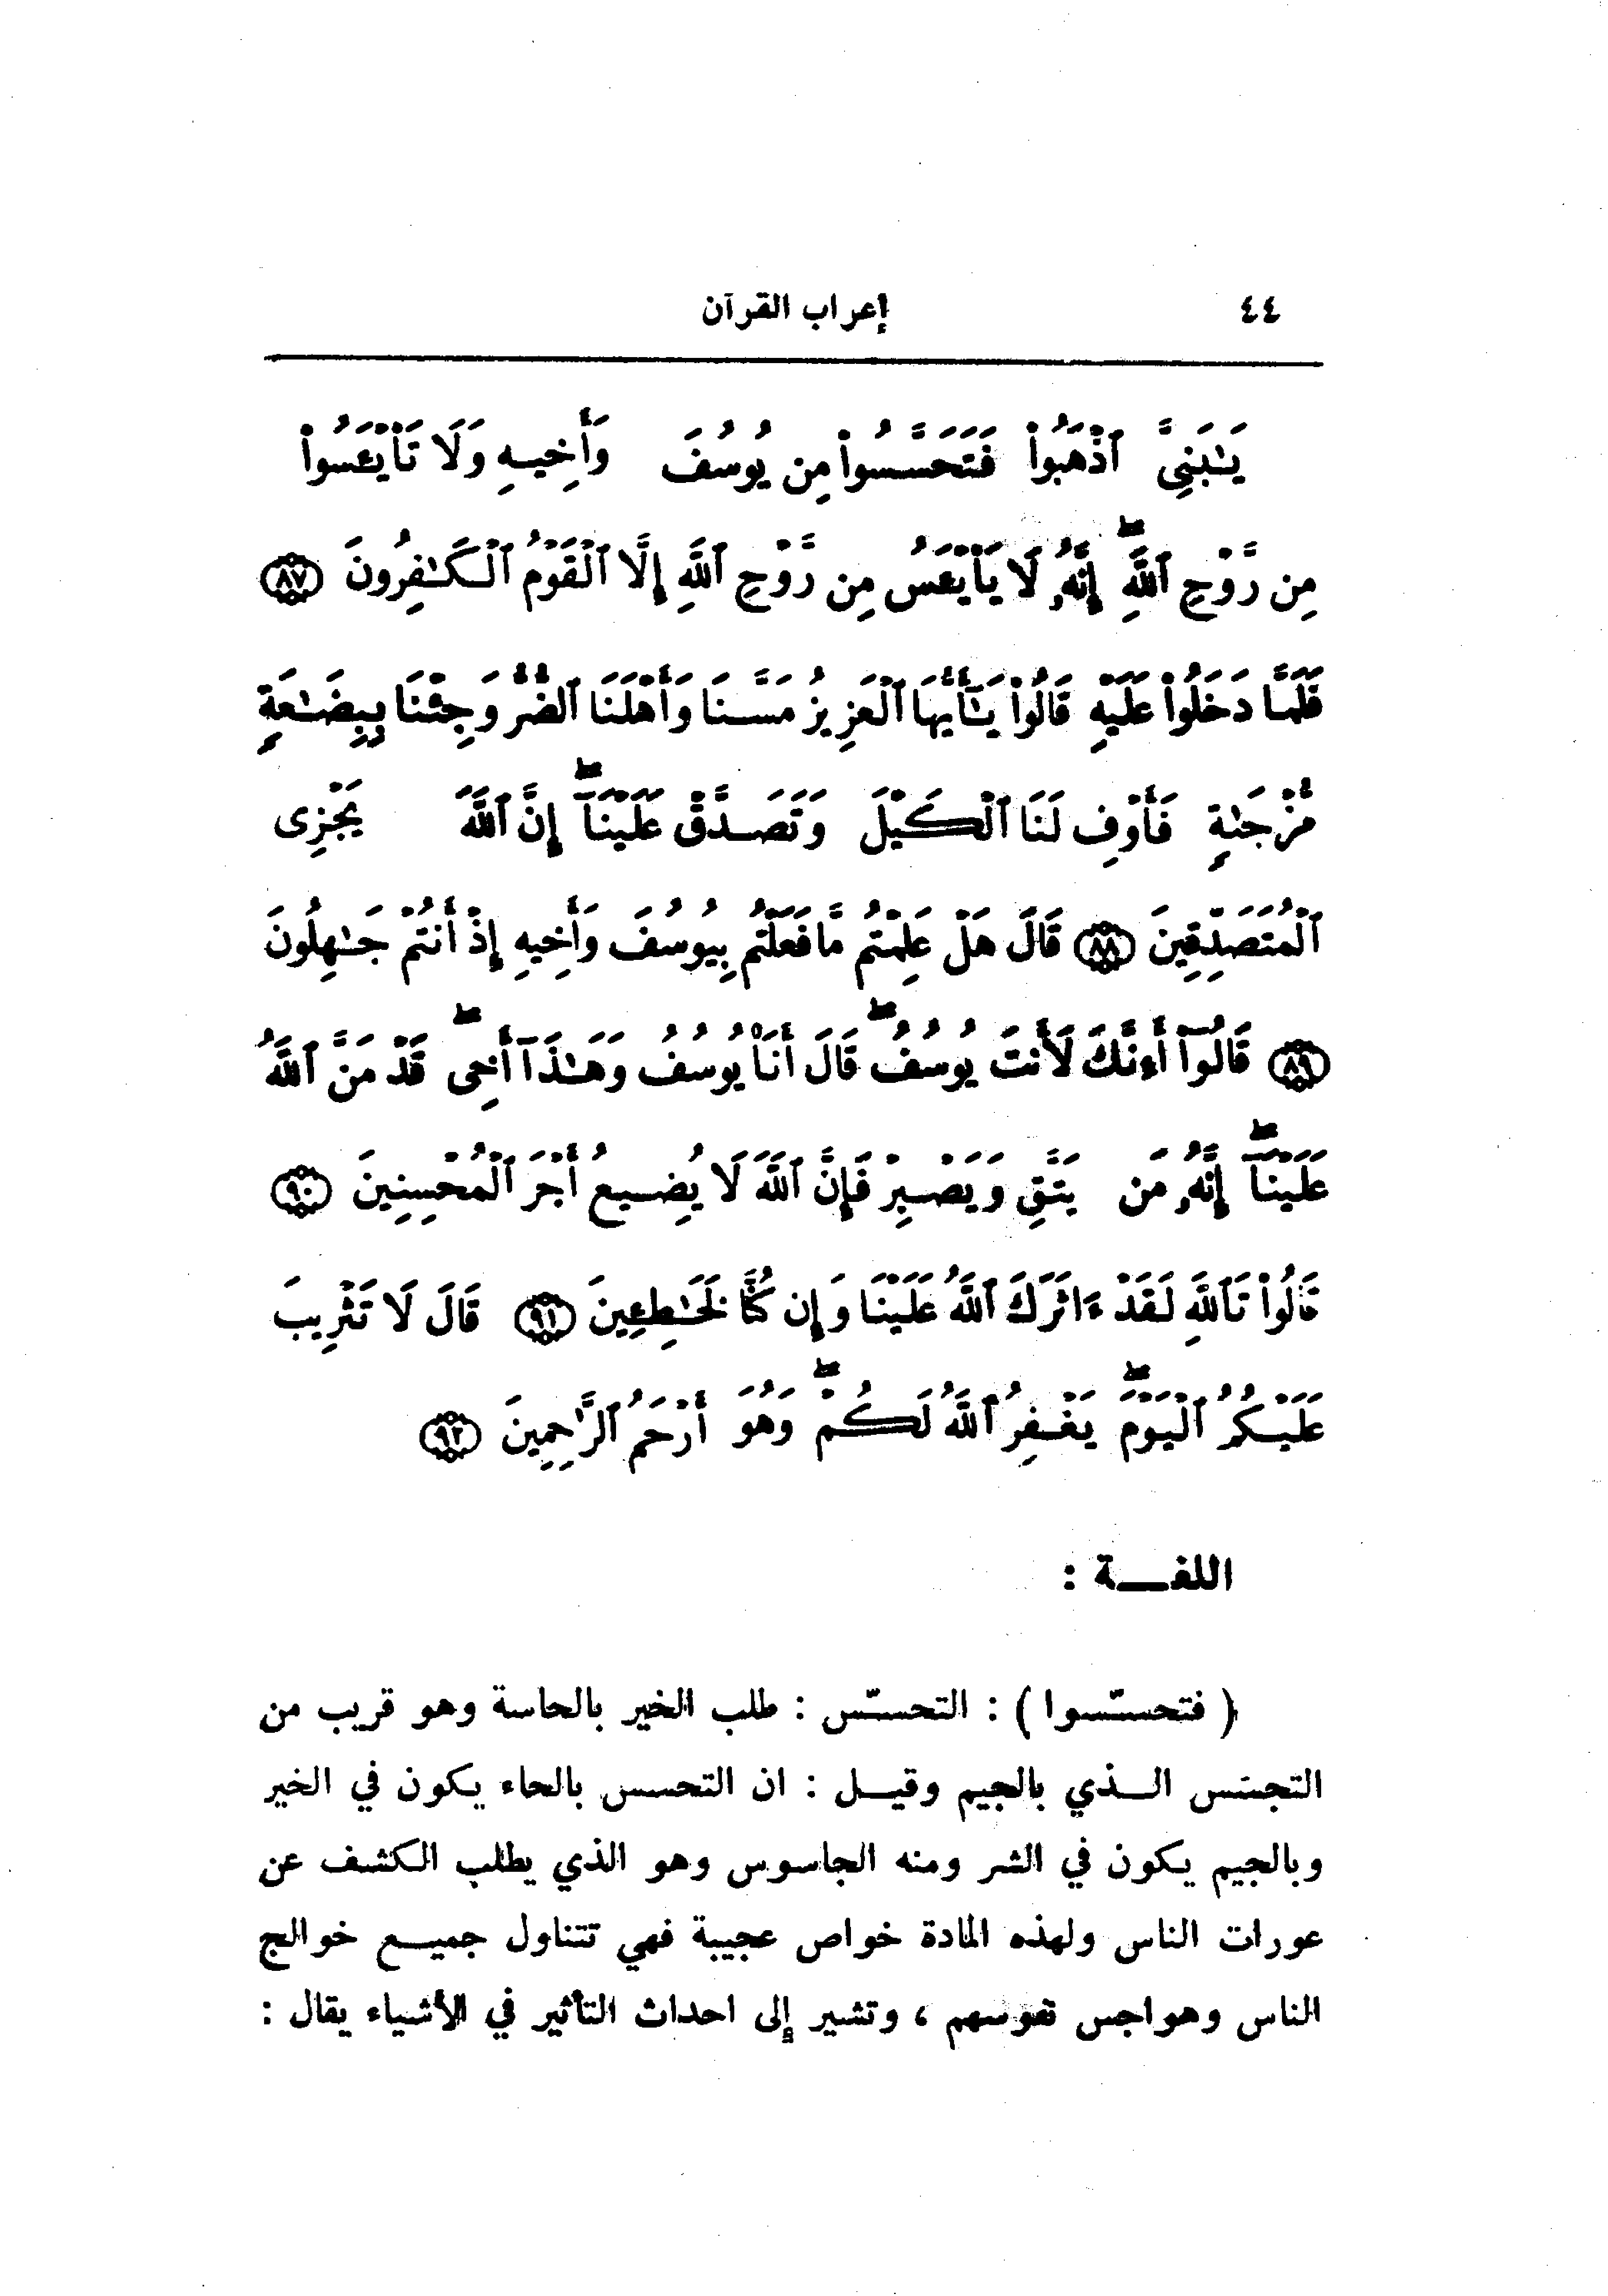 ٤٤ إعراب القرآن
يَـٰبَنِىَّ ٱذْهَبُوا۟ فَتَحَسَّسُوا۟ مِن يُوسُفَ وَأَخِيهِ وَلَا تَا۟يْـَٔسُوا۟
مِن رَّوْحِ ٱللَّهِ ۖ إِنَّهُۥ لَا يَا۟يْـَٔسُ مِن رَّوْحِ ٱللَّهِ إِلَّا ٱلْقَوْمُ ٱلْكَـٰفِرُونَ ﴿٨٧﴾
فَلَمَّا دَخَلُوا۟ عَلَيْهِ قَالُوا۟ يَـٰٓأَيُّهَا ٱلْعَزِيزُ مَسَّنَا وَأَهْلَنَا ٱلضُّرُّ وَجِئْنَا بِبِضَـٰعَةٍ
مُّزْجَىٰةٍ فَأَوْفِ لَنَا ٱلْكَيْلَ وَتَصَدَّقْ عَلَيْنَآ ۖ إِنَّ ٱللَّهَ يَجْزِى
ٱلْمُتَصَدِّقِينَ ﴿٨٨﴾ قَالَ هَلْ عَلِمْتُم مَّا فَعَلْتُم بِيُوسُفَ وَأَخِيهِ إِذْ أَنتُمْ جَـٰهِلُونَ
﴿٨٩﴾ قَالُوٓا۟ أَءِنَّكَ لَأَنتَ يُوسُفُ ۖ قَالَ أَنَا۠ يُوسُفُ وَهَـٰذَآ أَخِى ۖ قَدْ مَنَّ ٱللَّهُ
عَلَيْنَآ ۖ إِنَّهُۥ مَن يَتَّقِ وَيَصْبِرْ فَإِنَّ ٱللَّهَ لَا يُضِيعُ أَجْرَ ٱلْمُحْسِنِينَ ﴿٩٠﴾
قَالُوا۟ تَٱللَّهِ لَقَدْ ءَاثَرَكَ ٱللَّهُ عَلَيْنَا وَإِن كُنَّا لَخَـٰطِـِٔينَ ﴿٩١﴾ قَالَ لَا تَثْرِيبَ
عَلَيْكُمُ ٱلْيَوْمَ ۖ يَغْفِرُ ٱللَّهُ لَكُمْ ۖ وَهُوَ أَرْحَمُ ٱلرَّٰحِمِينَ ﴿٩٢﴾
اللغـــة :
( فتحسّسوا ) : التحسّس : طلب الخير بالحاسة وهو قريب من
التجسّس الـذي بالجيم وقيـل : ان التحسس بالحاء يكون في الخير
وبالجيم يكون في الشر ومنه الجاسوس وهو الذي يطلب الكشف عن
عورات الناس ولهذه المادة خواص عجيبة فهي تتناول جميـع خوالج
الناس وهواجس نفوسهم ، وتشير إلى احداث التأثير في الأشياء يقال :